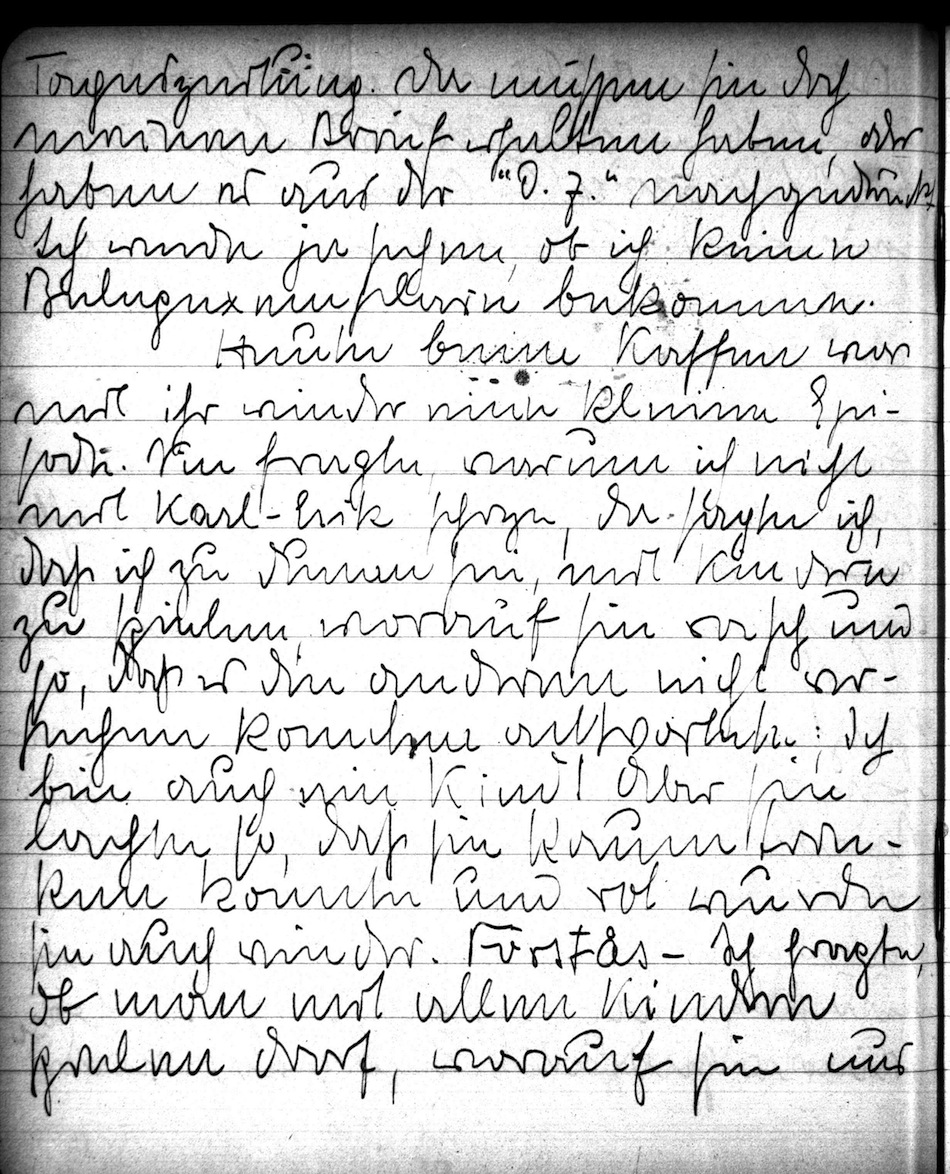 Tageszeitung. Da müssen sie doch
meinen Brief erhalten haben, oder
haben es aus der "D. Z." nachgedruckt.
Ich werde ja sehen, ob ich keine
Belegexemplare bekomme.
Heute beim Kaffee war
mit ihr wieder eine kleine Epi-
sode. Sie fragte, warum ich nicht
mit Karl-Erik scherze, da sagte ich,
daß ich zu dumm sei, mit Kindern
zu spielen, worauf sie rasch und
so, daß es die anderen nicht ver-
stehen konnten antwortete: Ich
bin auch ein Kind! Aber sie
lachte so, daß sie kaum trin-
ken konnte und rot wurde
sie auch wieder. Förstås – Ich fragte,
ob man mit allen Kindern
spielen darf, worauf sie nur